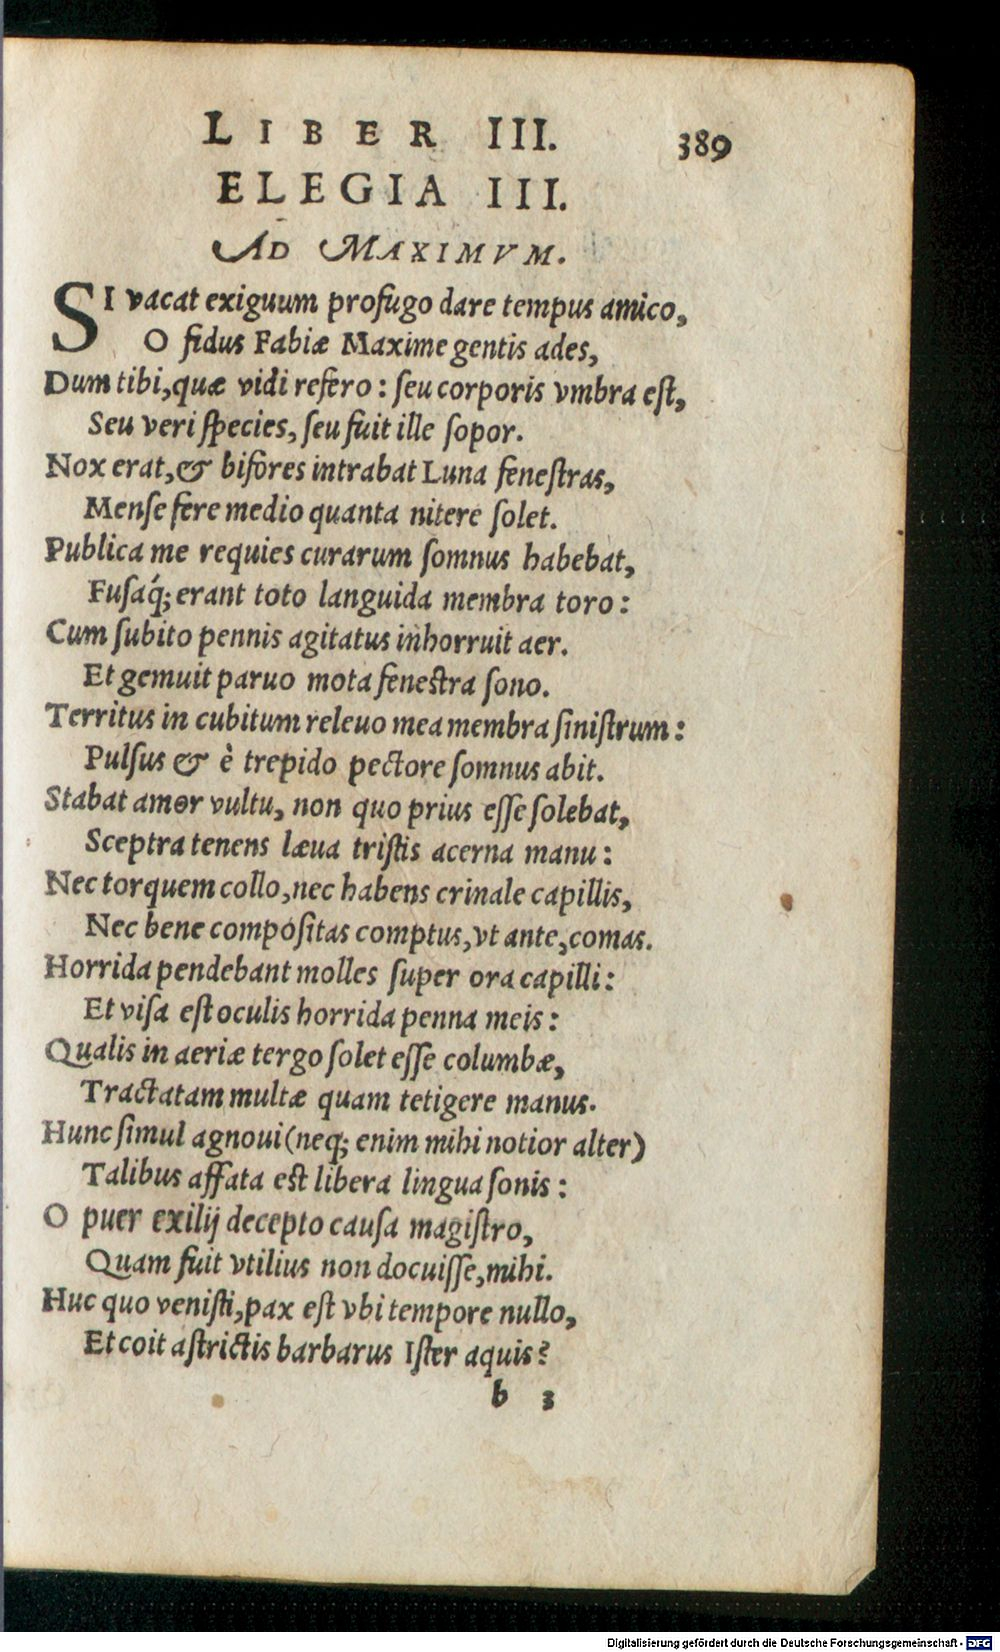 LIBER III. 389
ELEGIA III.
AD MAXIMVM.
SI vacat exiguum profugo dare tempus amico,
O fidus Fabiæ Maxime gentis ades,
Dum tibi, quæ vidi refero: ſeu corporis vmbra eſt,
Seu veri ſpecies, ſeu fuit ille ſopor.
Nox erat, & bifores intrabat Luna feneſtras,
Menſe fere medio quanta nitere ſolet.
Publica me requies curarum ſomnus habebat,
Fuſaq́; erant toto languida membra toro:
Cum ſubito pennis agitatus inhorruit aer.
Et gemuit paruo mota feneſtra ſono.
Territus in cubitum releuo mea membra ſiniſtrum:
Pulſus & è trepido pectore ſomnus abit.
Stabat amor vultu, non quo prius eſſe ſolebat,
Sceptra tenens læua triſtis acerna manu:
Nec torquem collo, nec habens crinale capillis,
Nec bene compoſitas comptus, vt ante, comas.
Horrida pendebant molles ſuper ora capilli:
Et viſa eſt oculis horrida penna meis:
Qualis in aeriæ tergo ſolet eſſe columbæ,
Tractatam multæ quam tetigere manus.
Hunc ſimul agnoui (neq; enim mihi notior alter)
Talibus affata eſt libera lingua ſonis:
O puer exilij decepto cauſa magiſtro,
Quam fuit vtilius non docuiſſe, mihi.
Huc quo veniſti, pax eſt vbi tempore nullo,
Et coit aſtrictis barbarus Iſter aquis?
b 3
Digitalisierung gefördert durch die Deutsche Forschungsgemeinschaft - DFG